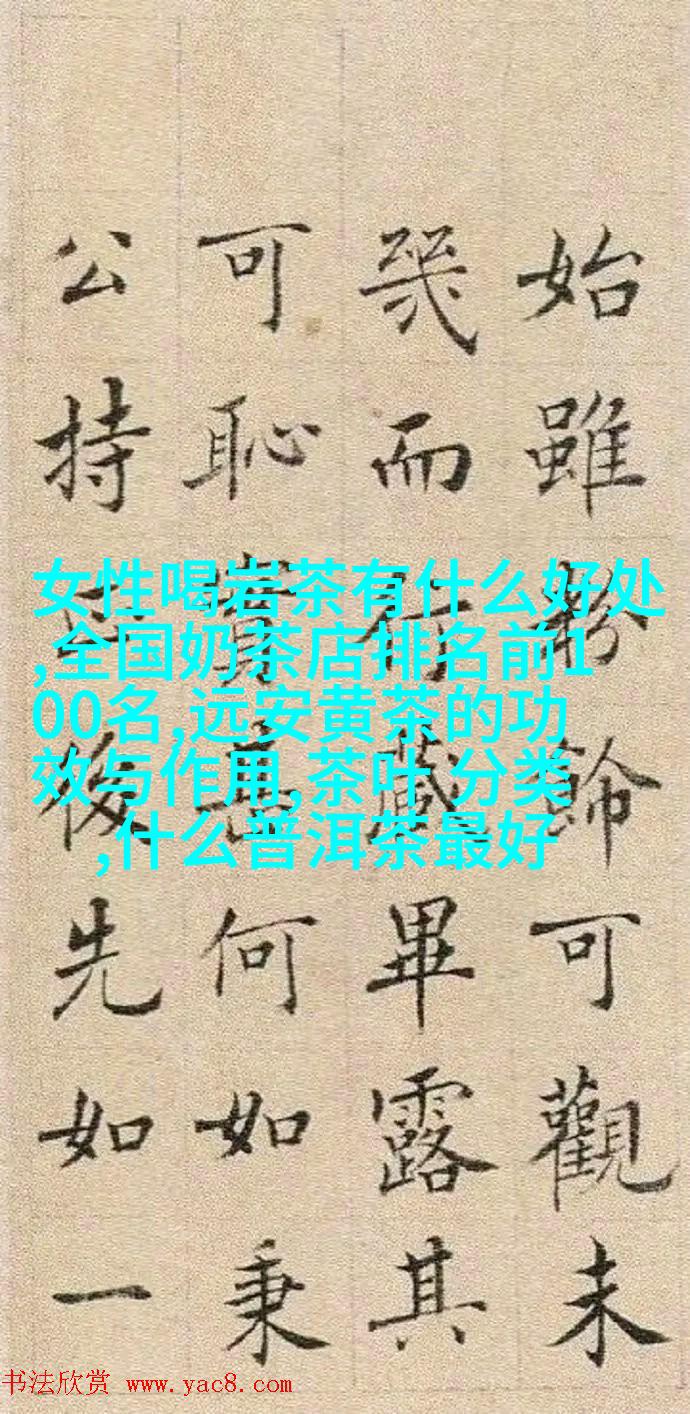 始雖粉飾可觀未
幾而行藏畢露其
可恥實何如秉
公持後先如一
女性喝岩茶有什么好处
,全国奶茶店排名前1
00名,远安黄茶的功
效与作用,茶叶 分类
,什么普洱茶最好
书法欣赏 www.yac8.com